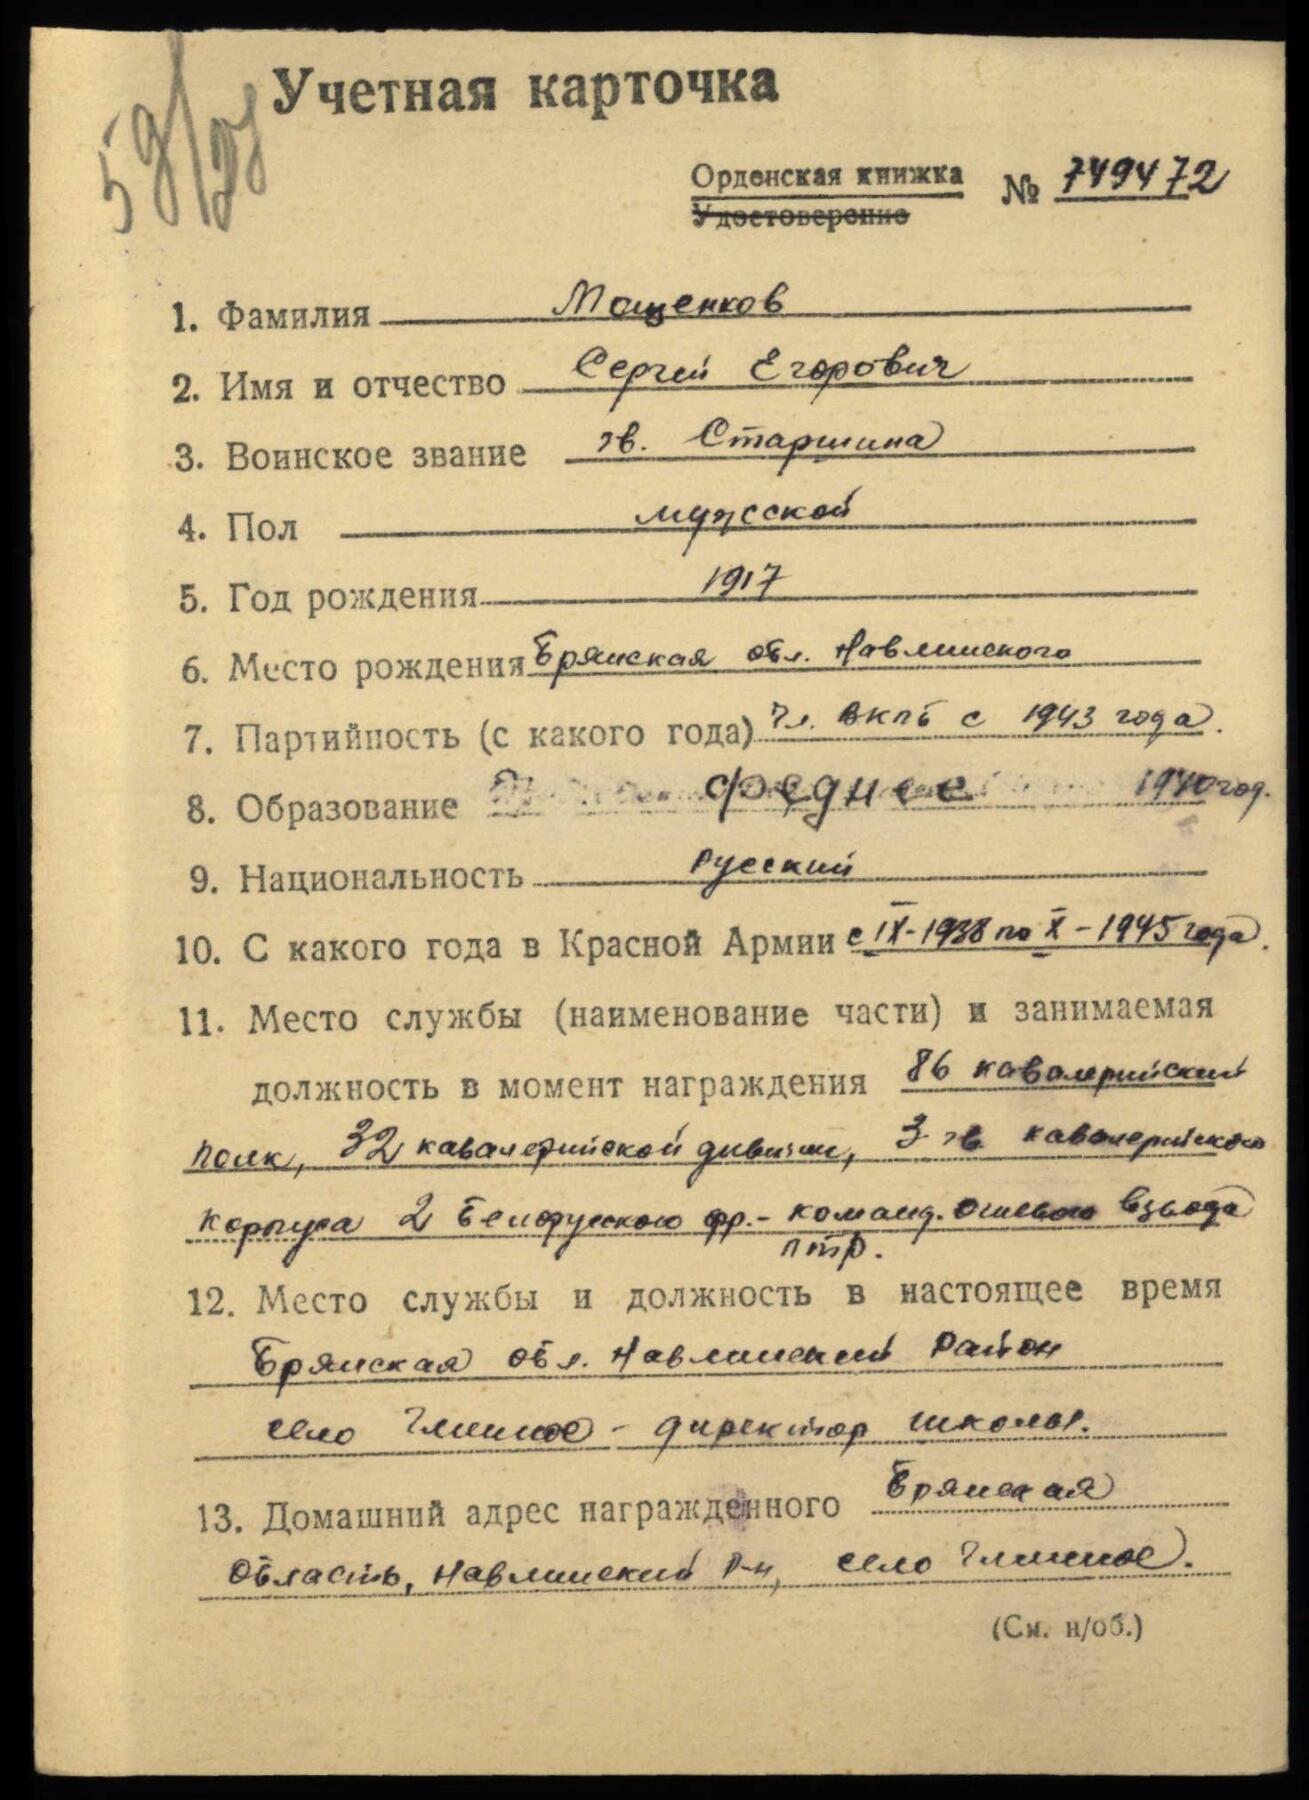 Учетная карточка
Орденская книжка № 749472
Удостоверение
1. Фамилия Мощенков
2. Имя и отчество Сергей Егорович
3. Воинское звание гв. Старшина
4. Пол мужской
5. Год рождения 1917
6. Место рождения Брянская обл. Навлинского
7. Партийность (с какого года) Чл. ВКПб с 1943 года.
8. Образование среднее 1940 год.
9. Национальность Русский
10. С какого года в Красной Армии с IX-1938 по X-1945 года.
11. Место службы (наименование части) и занимаемая
должность в момент награждения 86 кавалерийский
полк, 32 кавалерийской дивизии, 3 гв. кавалерийского
корпуса 2 Белорусского фр. - команд. огневого взвода
птр.
12. Место службы и должность в настоящее время
Брянская обл. Навлинский Район
село Глинное - директор школы.
13. Домашний адрес награжденного Брянская
область, Навлинский р-н, село Глинное.
(См. н/об.)